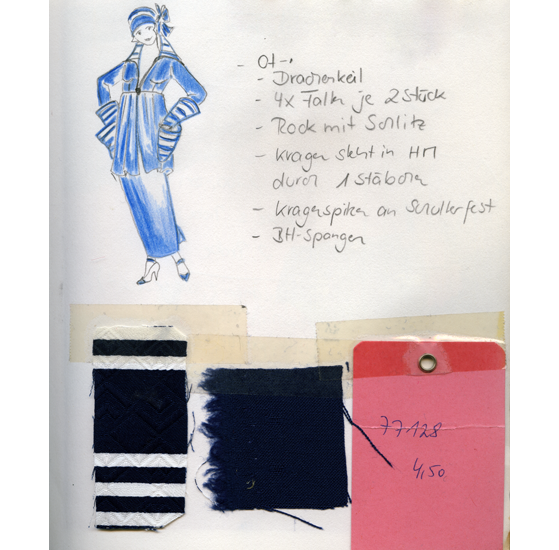 - Drachenkeil
- 4x Falten je 2 Stück
- Rock mit Schlitz
- Kragen steht in HM
durch 1 Stäbchen
- Kragenspitzen an Schulter fest
- BH-Spangen
77128
4,50